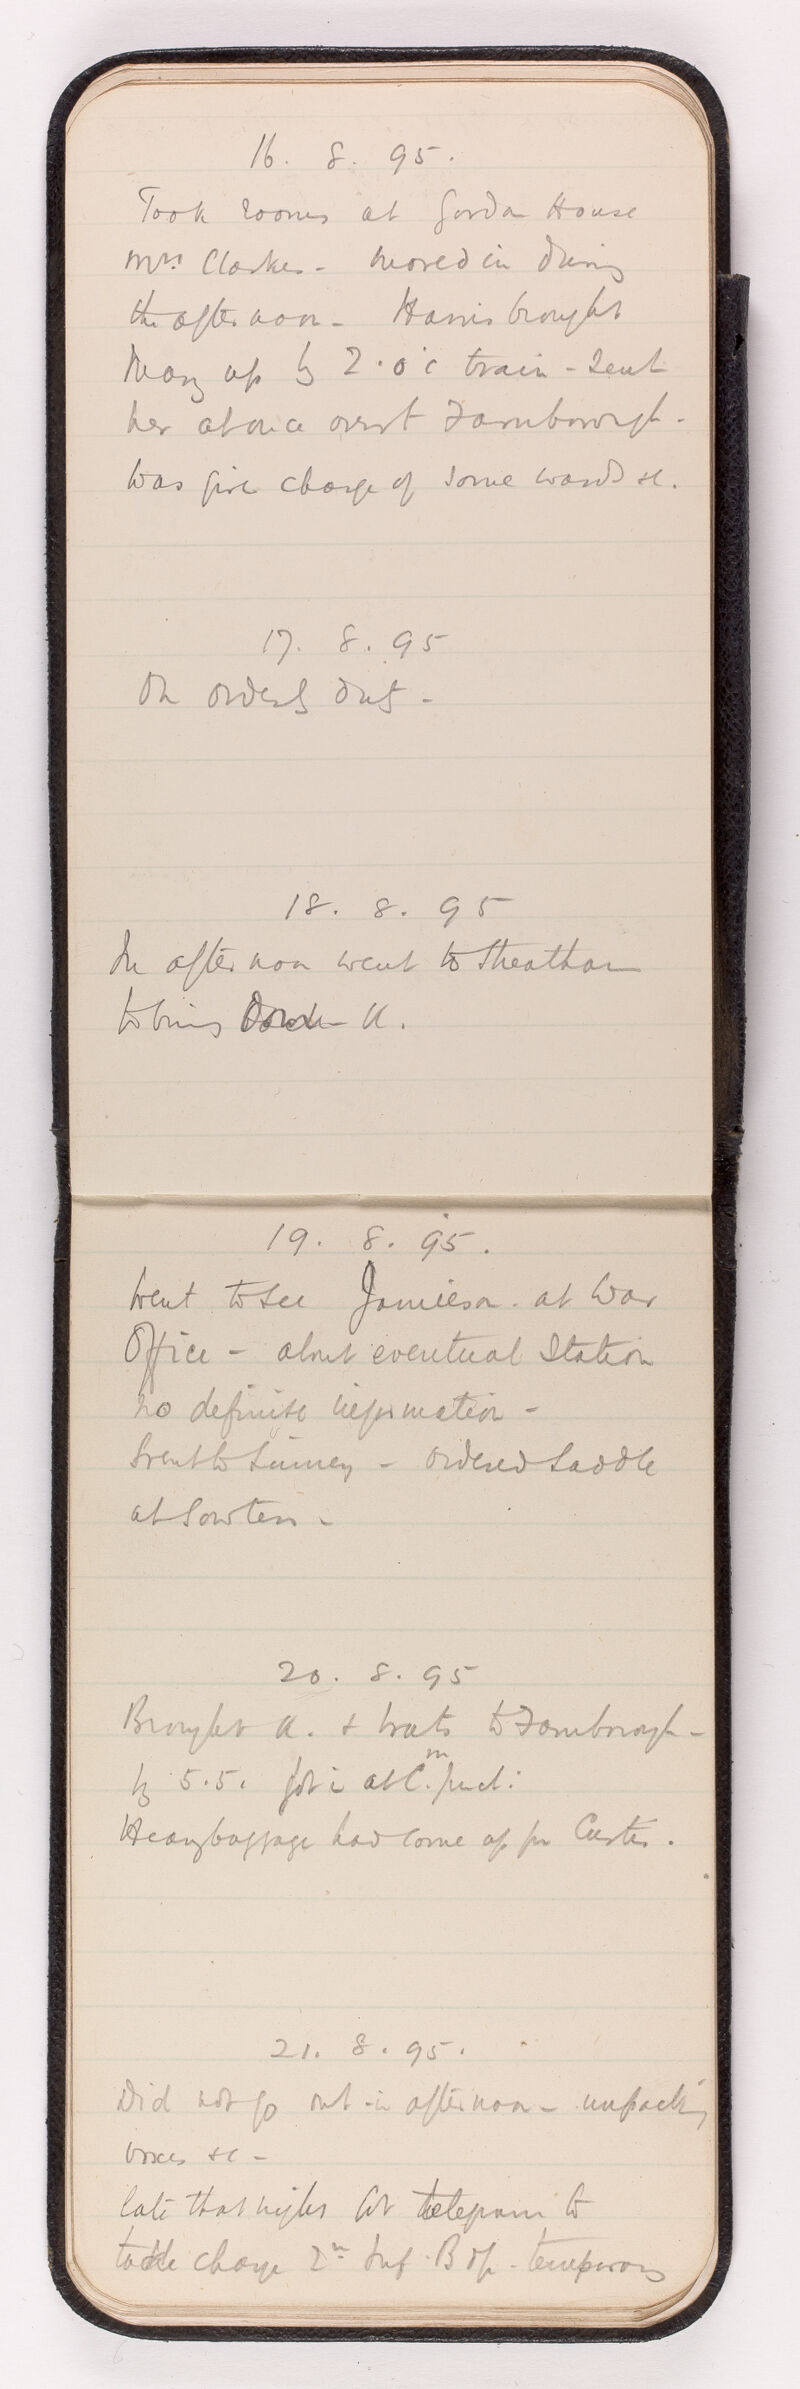 16. 8. 95.
Took rooms at Gordon House
Mrs Clarkes - moved in during
the afternoon - Harris brought
Mary up by 2.0'c train - Sent
her at once over to Farnborough -
Was given charge of some wards &c.
17. 8. 95
On orderly duty -
18. 8. 95
In afternoon went to Streatham
to bring down A.
19. 8. 95.
Went to see Jamieson at War
Office - about eventual Station
no definite information -
Went to - ordered Saddle
at Sowters -
20. 8. 95
Brought A. & brats to Farnborough -
by 5.5. got in at
Heavy baggage had come up per Curtis.
21. 8. 95.
Did not go out in afternoon - unpacking
boxes &c -
late that night Got telegram to
take charge 2n Inf. temporary